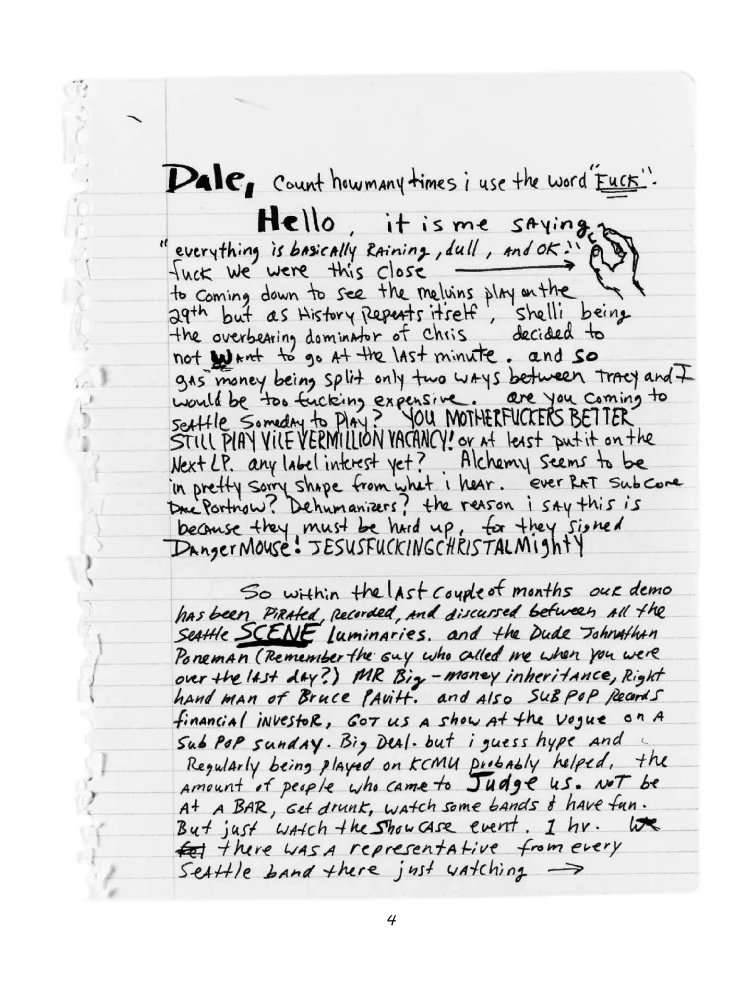 Dale, Count how many times i use the word "Fuck".
Hello, it is me saying
"everything is basically Raining, dull, and OK!"
fuck we were this close
to coming down to see the melvins play on the
29th but as History Repeats itself, Shelli being
the overbearing dominator of Chris decided to
not want to go at the last minute. and so
gas money being split only two ways between Tracy and I
would be too fucking expensive. are you coming to
seattle Someday to Play? YOU MOTHERFUCKERS BETTER
STILL PLAY VILE VERMILLION VACANCY! or at least put it on the
Next LP. any label interest yet? Alchemy seems to be
in pretty sorry shape from what i hear. ever RAT SubCore
Portnow? Dehumanizers? the reason i say this is
because they must be hard up, for they signed
Danger Mouse! JESUSFUCKINGCHRISTALMighty
So within the last Couple of months our demo
has been PiRated, Recorded, and discussed between all the
Seattle SCENE luminaries. and the Dude Johnathan
Poneman (Remember the guy who called me when you were
over the last day?) MR Big-money inheritance, Right
hand man of Bruce Pavitt. and Also SUB POP Records
financial investor, Got us a show at the Vogue on a
Sub Pop sunday. Big Deal. but i guess hype and
Regularly being played on KCMU probably helped, the
amount of people who came to Judge us. NOT be
At a BAR, Get drunk, watch some bands & have fun.
But just watch the Showcase event. 1 hr. We
there was a representative from every
Seattle band there just watching →
4